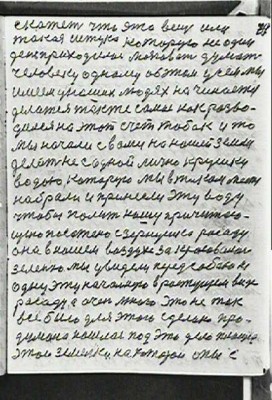 скажет что это вещь или
такая штука которую не один
день приходилось ломать думать
человеку одному об этом у себя мы
имеем у наших людях на чинается
делается так же само как разво-
дился на этот счёт табак и то
мы начали с вами на нашей земли
делать не с одной лично кружки
водою, которую мы в таком месте
набрали и принесли эту воду
чтобы полить нашу причитаю-
щую посажено с зернышка рассаду
она в нашем воздухе
зелено. мы увидели перед собою не
одну эту начатую в растущем виде
рассаду а очень много. Это не так
всё было для этого сделано про-
думано нашлась под это дело
этого земелька на которой они с